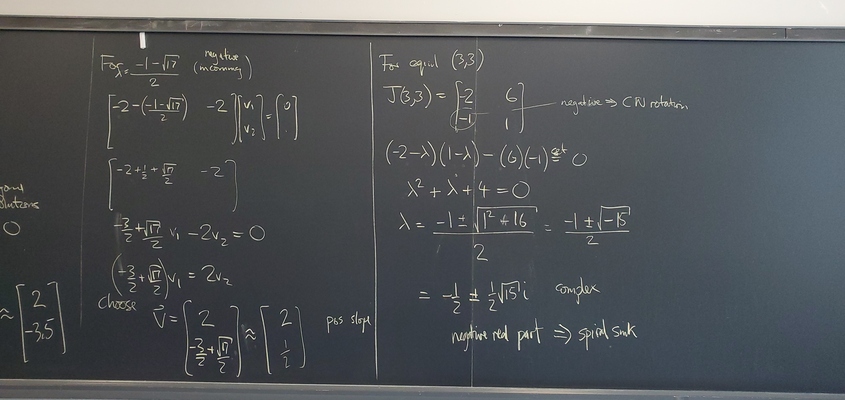 0
≈ [2
-3.5]
For λ = (-1-√17)/2 negative (incoming)
[-2-((-1-√17)/2) -2][v₁ v₂] = [0
[-2+1/2+√17/2 -2]
-3/2+√17/2 v₁ - 2v₂ = 0
(-3/2+√17/2)v₁ = 2v₂
Choose
v⃗ = [2
-3/2+√17/2] ≈ [2
1/2] pos slope
For equal (3,3)
J(3,3) = [-2 6
-1 1] negative ⇒ CW rotation
(-2-λ)(1-λ) - (6)(-1) set= 0
λ² + λ + 4 = 0
λ = (-1 ± √(1² + 16))/2 = (-1 ± √-15)/2
= -1/2 ± 1/2 √15 i complex
negative real part ⇒ spiral sink